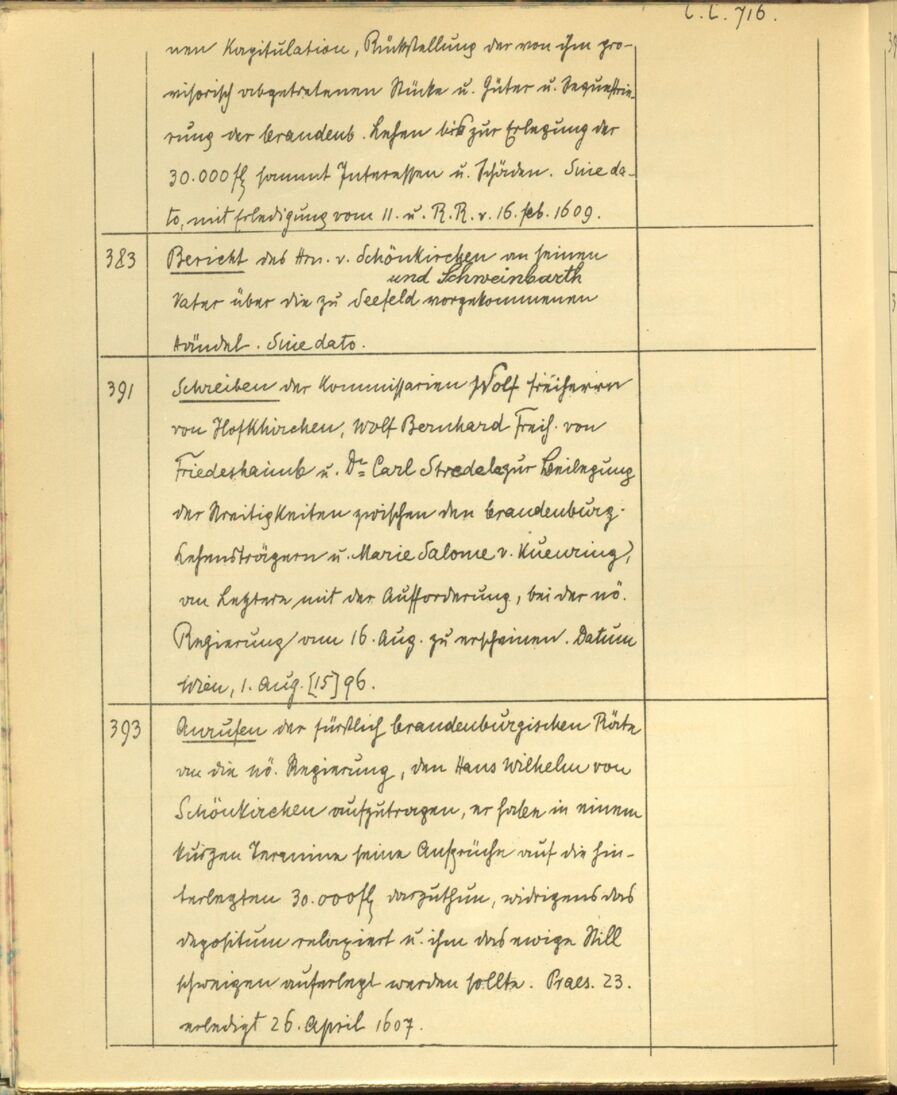 C.C. 716.
nen Kapitulation, Rückstellung der von ihm pro-
visorisch abgetretenen Stücke u. Güter u. Sequestrie-
rung der brandenb. Lehen bis zur Erlegung der
30.000 fl sammt Interessen u. Schäden. Sine da-
to, mit Erledigung vom 11. u. R.R. v. 16. feb. 1609.
383 Bericht des Hrn. v. Schönkirchen an seinen
und Schweinbarth
Vater über die zu Seefeld vorgekommenen
Händel. Sine dato.
391 Schreiben der Kommissarien Wolf Freiherrn
von Hofkhirchen, Wolf Bernhard Freih. von
Friedeshaimb u. Dr. Carl Stredele zur Beilegung
der Streitigkeiten zwischen den brandenburg.
Lehensträgern u. Marie Salome v. Kuenring,
an Letztere mit der Aufforderung, bei der nö.
Regierung am 16. Aug. zu erscheinen. Datum
Wien, 1. Aug. [15]96.
393 Anrufen der fürstlich brandenburgischen Räte
an die nö. Regierung, den Hans Wilhelm von
Schönkirchen aufzutragen, er habe in einem
kurzen Termine seine Ansprüche auf die hin-
terlegten 30.000 fl darzuthun, widrigens das
depositum relaxiert u. ihm das ewige Still
schweigen auferlegt werden sollte. Praes. 23.
erledigt 26. April 1607.